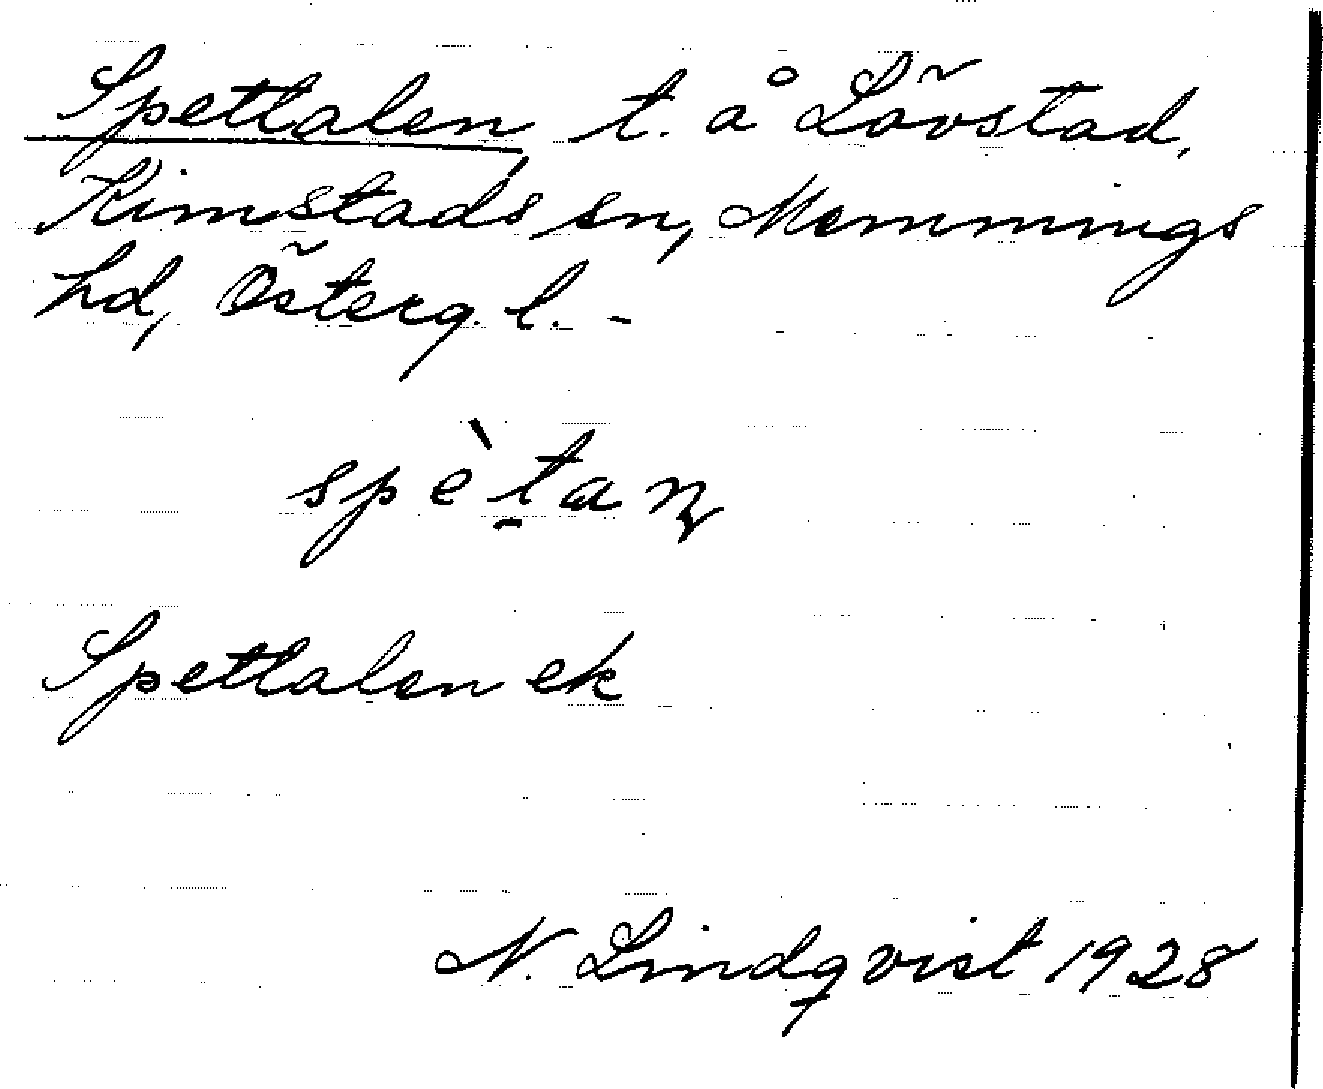 Spettalen, t. å Lövstad,
Kimstads sn, Memmings
hd, Österg. l. -
spètaṇ
Spettalen ek
N. Lindqvist 1928